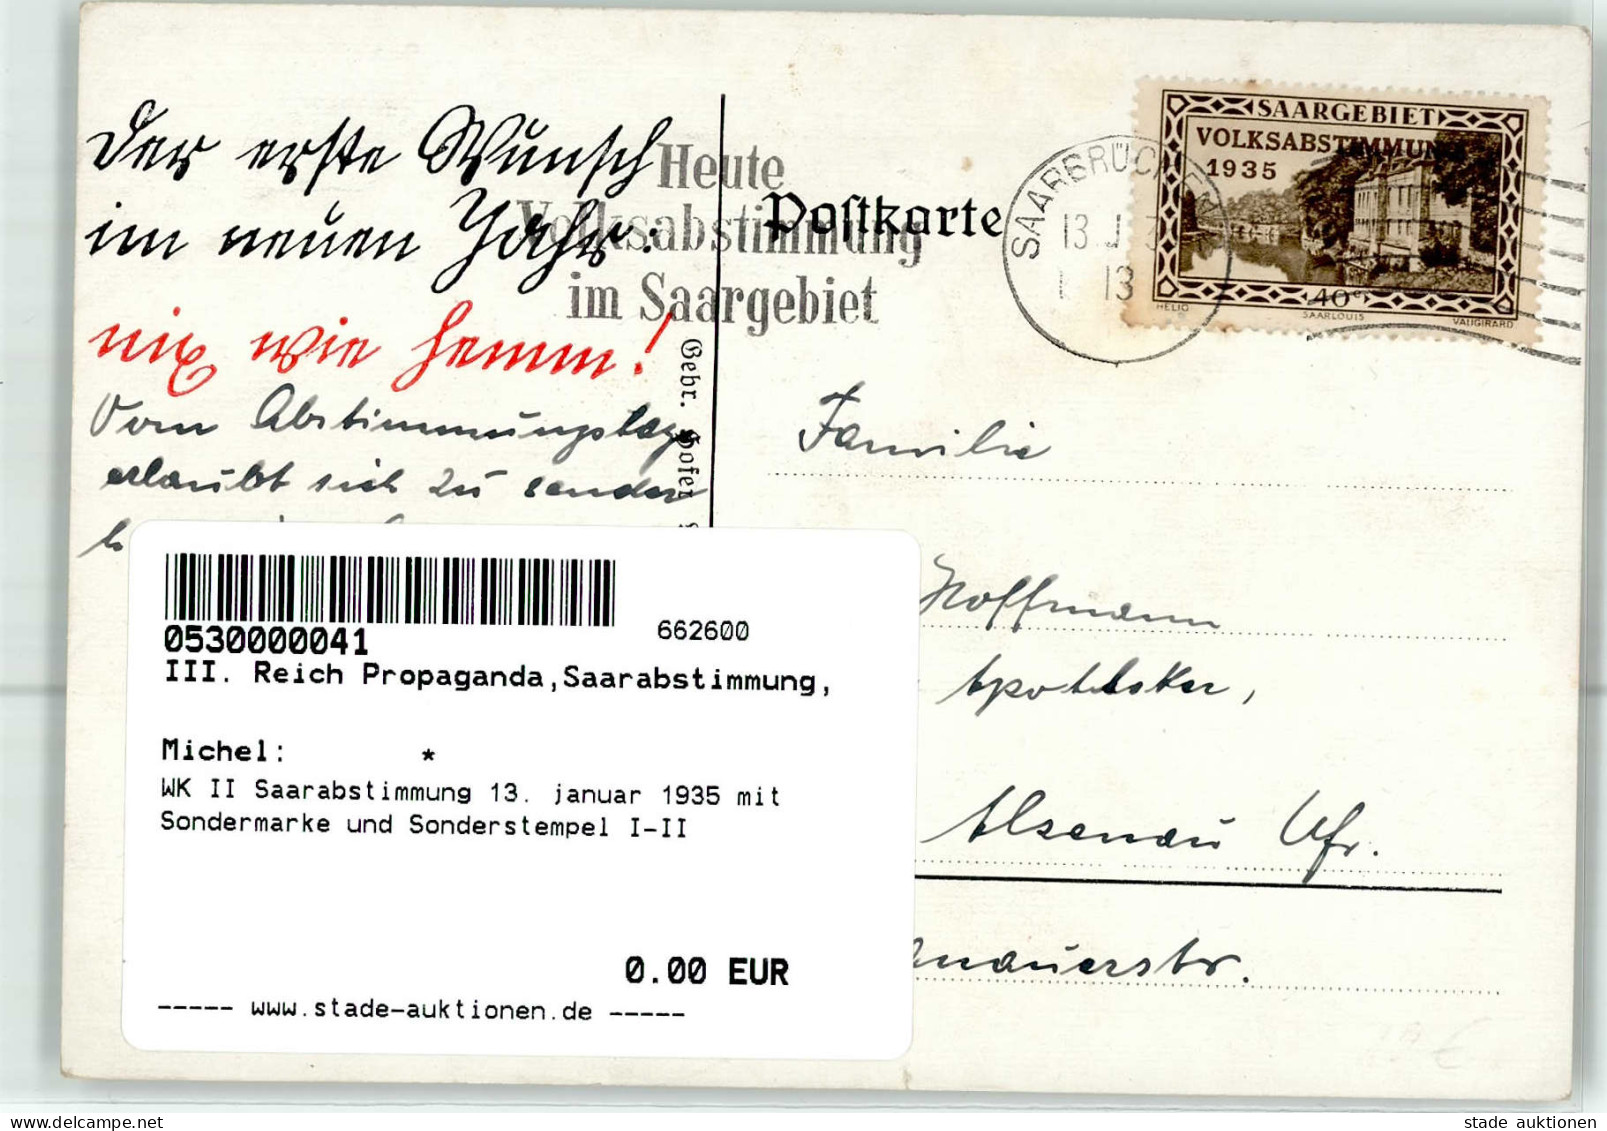 Der erste Wunsch
im neuen Jahr:
nix wie hemm!
Vom Abstimmungstage
erlaubt sich zu senden
Heute
Volksabstimmung
im Saargebiet
Postkarte
Gebr. Hofer
SAARBRÜCKEN
13
13
SAARGEBIET
VOLKSABSTIMMUNG
1935
40 c
HELIO
SAARLOUIS
VAUGIRARD
Familie
Hoffmann
Apotheker,
Alzenau Ufr.
nauerstr.
0530000041
662600
III. Reich Propaganda,Saarabstimmung,
Michel: *
WK II Saarabstimmung 13. januar 1935 mit
Sondermarke und Sonderstempel I-II
0.00 EUR
----- www.stade-auktionen.de -----
stade auktionen
delcampe.net